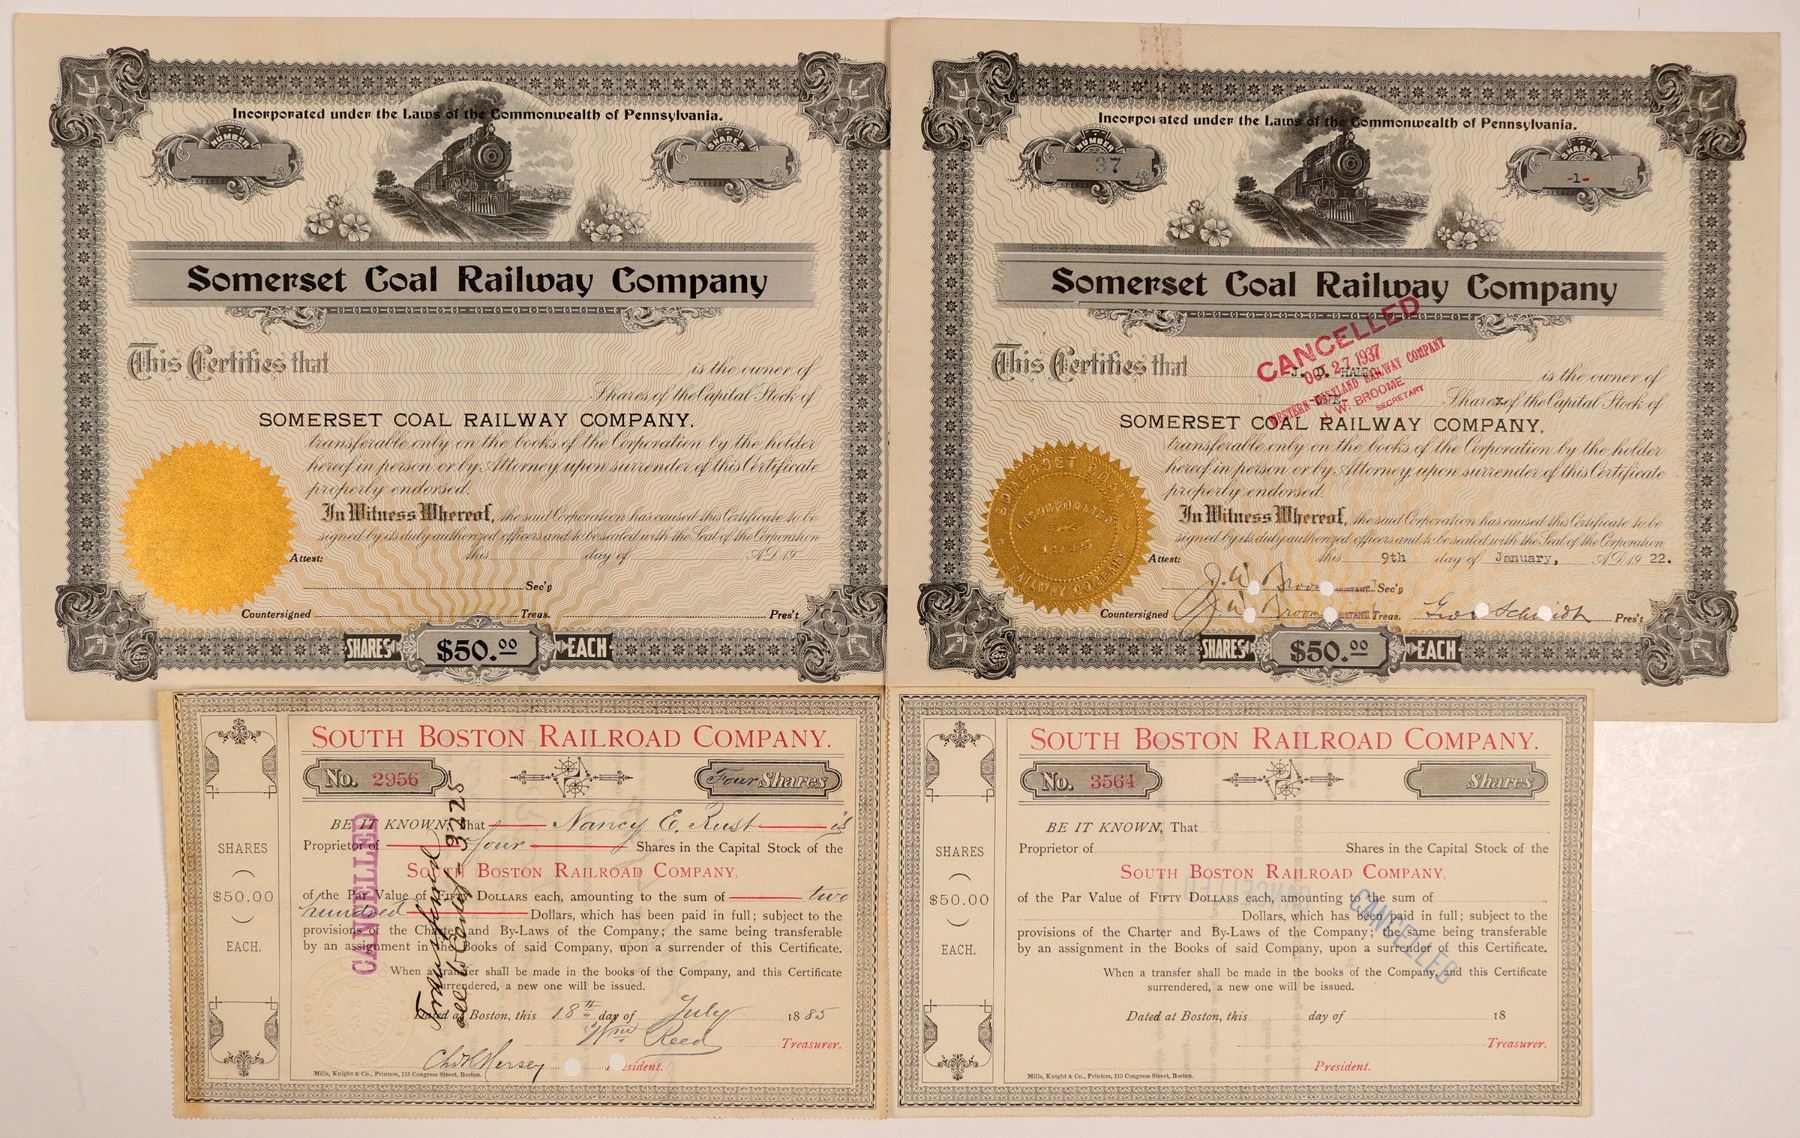 Incorporated under the Laws of the Commonwealth of Pennsylvania.
NUMBER
SHARES
Somerset Coal Railway Company
This Certifies that is the owner of
Shares of the Capital Stock of
SOMERSET COAL RAILWAY COMPANY.
transferable only on the books of the Corporation by the holder
hereof in person or by Attorney, upon surrender of this Certificate
properly endorsed.
In Witness Whereof, the said Corporation has caused this Certificate to be
signed by its duly authorized officers and to be sealed with the Seal of the Corporation
this day of A.D. 19
Attest:
Sec'y
Countersigned Treas. Pres't
SHARES $50.00 EACH
Incorporated under the Laws of the Commonwealth of Pennsylvania.
NUMBER
37
SHARES
-1-
Somerset Coal Railway Company
CANCELLED
OCT 27 1937
WESTERN MARYLAND RAILWAY COMPANY
J. W. BROOME
SECRETARY
This Certifies that J. D. is the owner of
-ONE- Share of the Capital Stock of
SOMERSET COAL RAILWAY COMPANY.
transferable only on the books of the Corporation by the holder
hereof in person or by Attorney, upon surrender of this Certificate
properly endorsed.
In Witness Whereof, the said Corporation has caused this Certificate to be
signed by its duly authorized officers and to be sealed with the Seal of the Corporation
this 9th day of January, A.D. 19 22.
SOMERSET COAL RAILWAY COMPANY
INCORPORATED
Attest:
J. W. Broome ASSISTANT Sec'y
Countersigned J. W. Broome ASSISTANT Treas. Geo Schmidt Pres't
SHARES $50.00 EACH
SOUTH BOSTON RAILROAD COMPANY.
No. 2956 Four Shares
BE IT KNOWN, That Nancy E. Rust is
Proprietor of four Shares in the Capital Stock of the
SOUTH BOSTON RAILROAD COMPANY,
of the Par Value of FIFTY DOLLARS each, amounting to the sum of two
hundred Dollars, which has been paid in full; subject to the
provisions of the Charter and By-Laws of the Company; the same being transferable
by an assignment in the Books of said Company, upon a surrender of this Certificate.
When a transfer shall be made in the books of the Company, and this Certificate
surrendered, a new one will be issued.
Dated at Boston, this 18th day of July 1885
Wm Reed Treasurer.
Chas H Hersey President.
Mills, Knight & Co., Printers, 115 Congress Street, Boston.
SHARES
$50.00
EACH.
CANCELLED
Transferred
3225
SOUTH BOSTON RAILROAD COMPANY.
No. 3564 Shares
BE IT KNOWN, That
Proprietor of Shares in the Capital Stock of the
SOUTH BOSTON RAILROAD COMPANY,
of the Par Value of FIFTY DOLLARS each, amounting to the sum of
Dollars, which has been paid in full; subject to the
provisions of the Charter and By-Laws of the Company; the same being transferable
by an assignment in the Books of said Company, upon a surrender of this Certificate.
When a transfer shall be made in the books of the Company, and this Certificate
surrendered, a new one will be issued.
Dated at Boston, this day of 18
Treasurer.
President.
Mills, Knight & Co., Printers, 115 Congress Street, Boston.
SHARES
$50.00
EACH.
CANCELLED